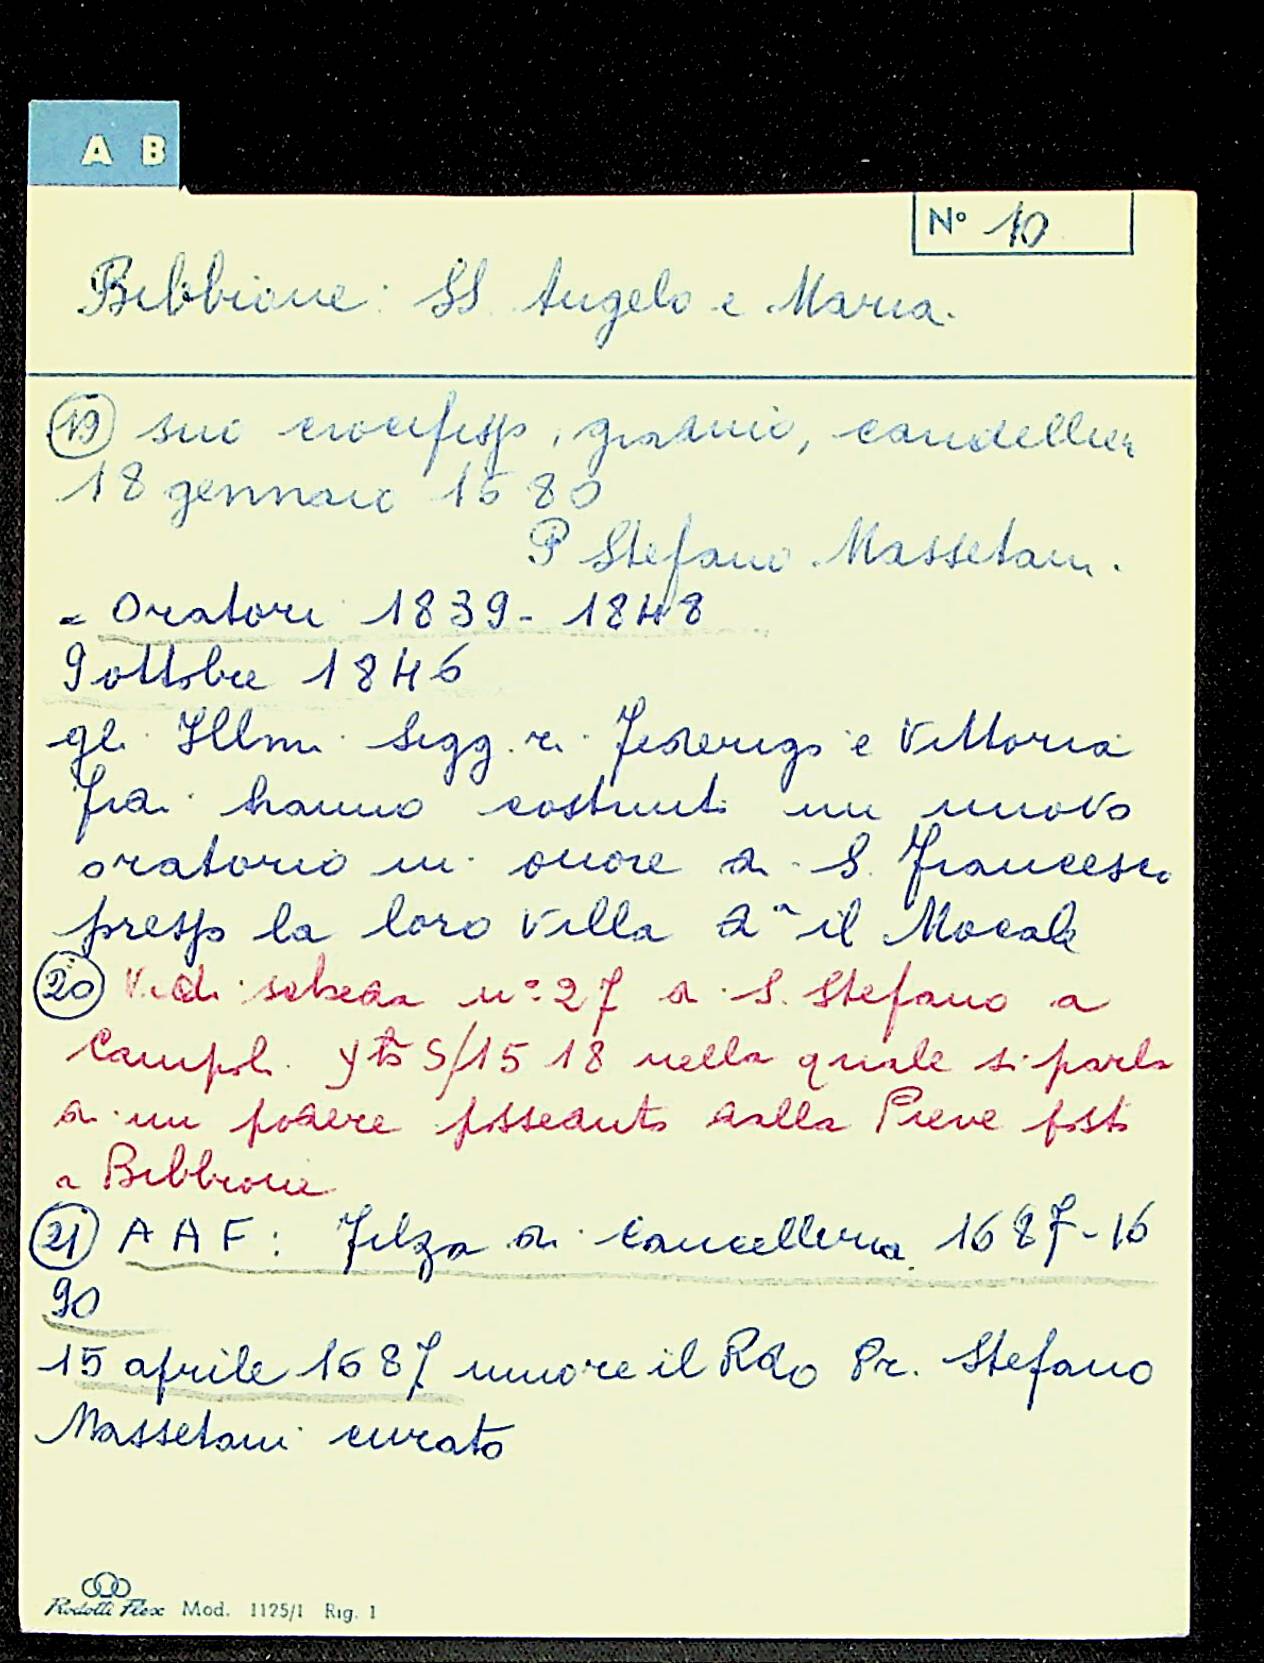 A B
N° 10
Bibbione: SS. Angelo e Maria.
19 suo crocifisso, gradini, candellieri
18 gennaio 1680
P Stefano Massetani.
= Oratori 1839-1848
9 ottobre 1846
gli Illmi Sigg.ri Federigo e Vittoria
hanno costruito un nuovo
oratorio in onore di S. Francesco
presso la loro Villa il Mocale
20 Vedi scheda n° 27 di S. Stefano a
Campoli 5/15 18 nella quale si parla
di un podere posseduto dalla Pieve posto
a Bibbione
21 A A F: Filza di Cancelleria 1687-16
90
15 aprile 1687 muore il Rdo Pr. Stefano
Massetani curato
Rodolli Flex Mod. 1125/1 Rig. 1